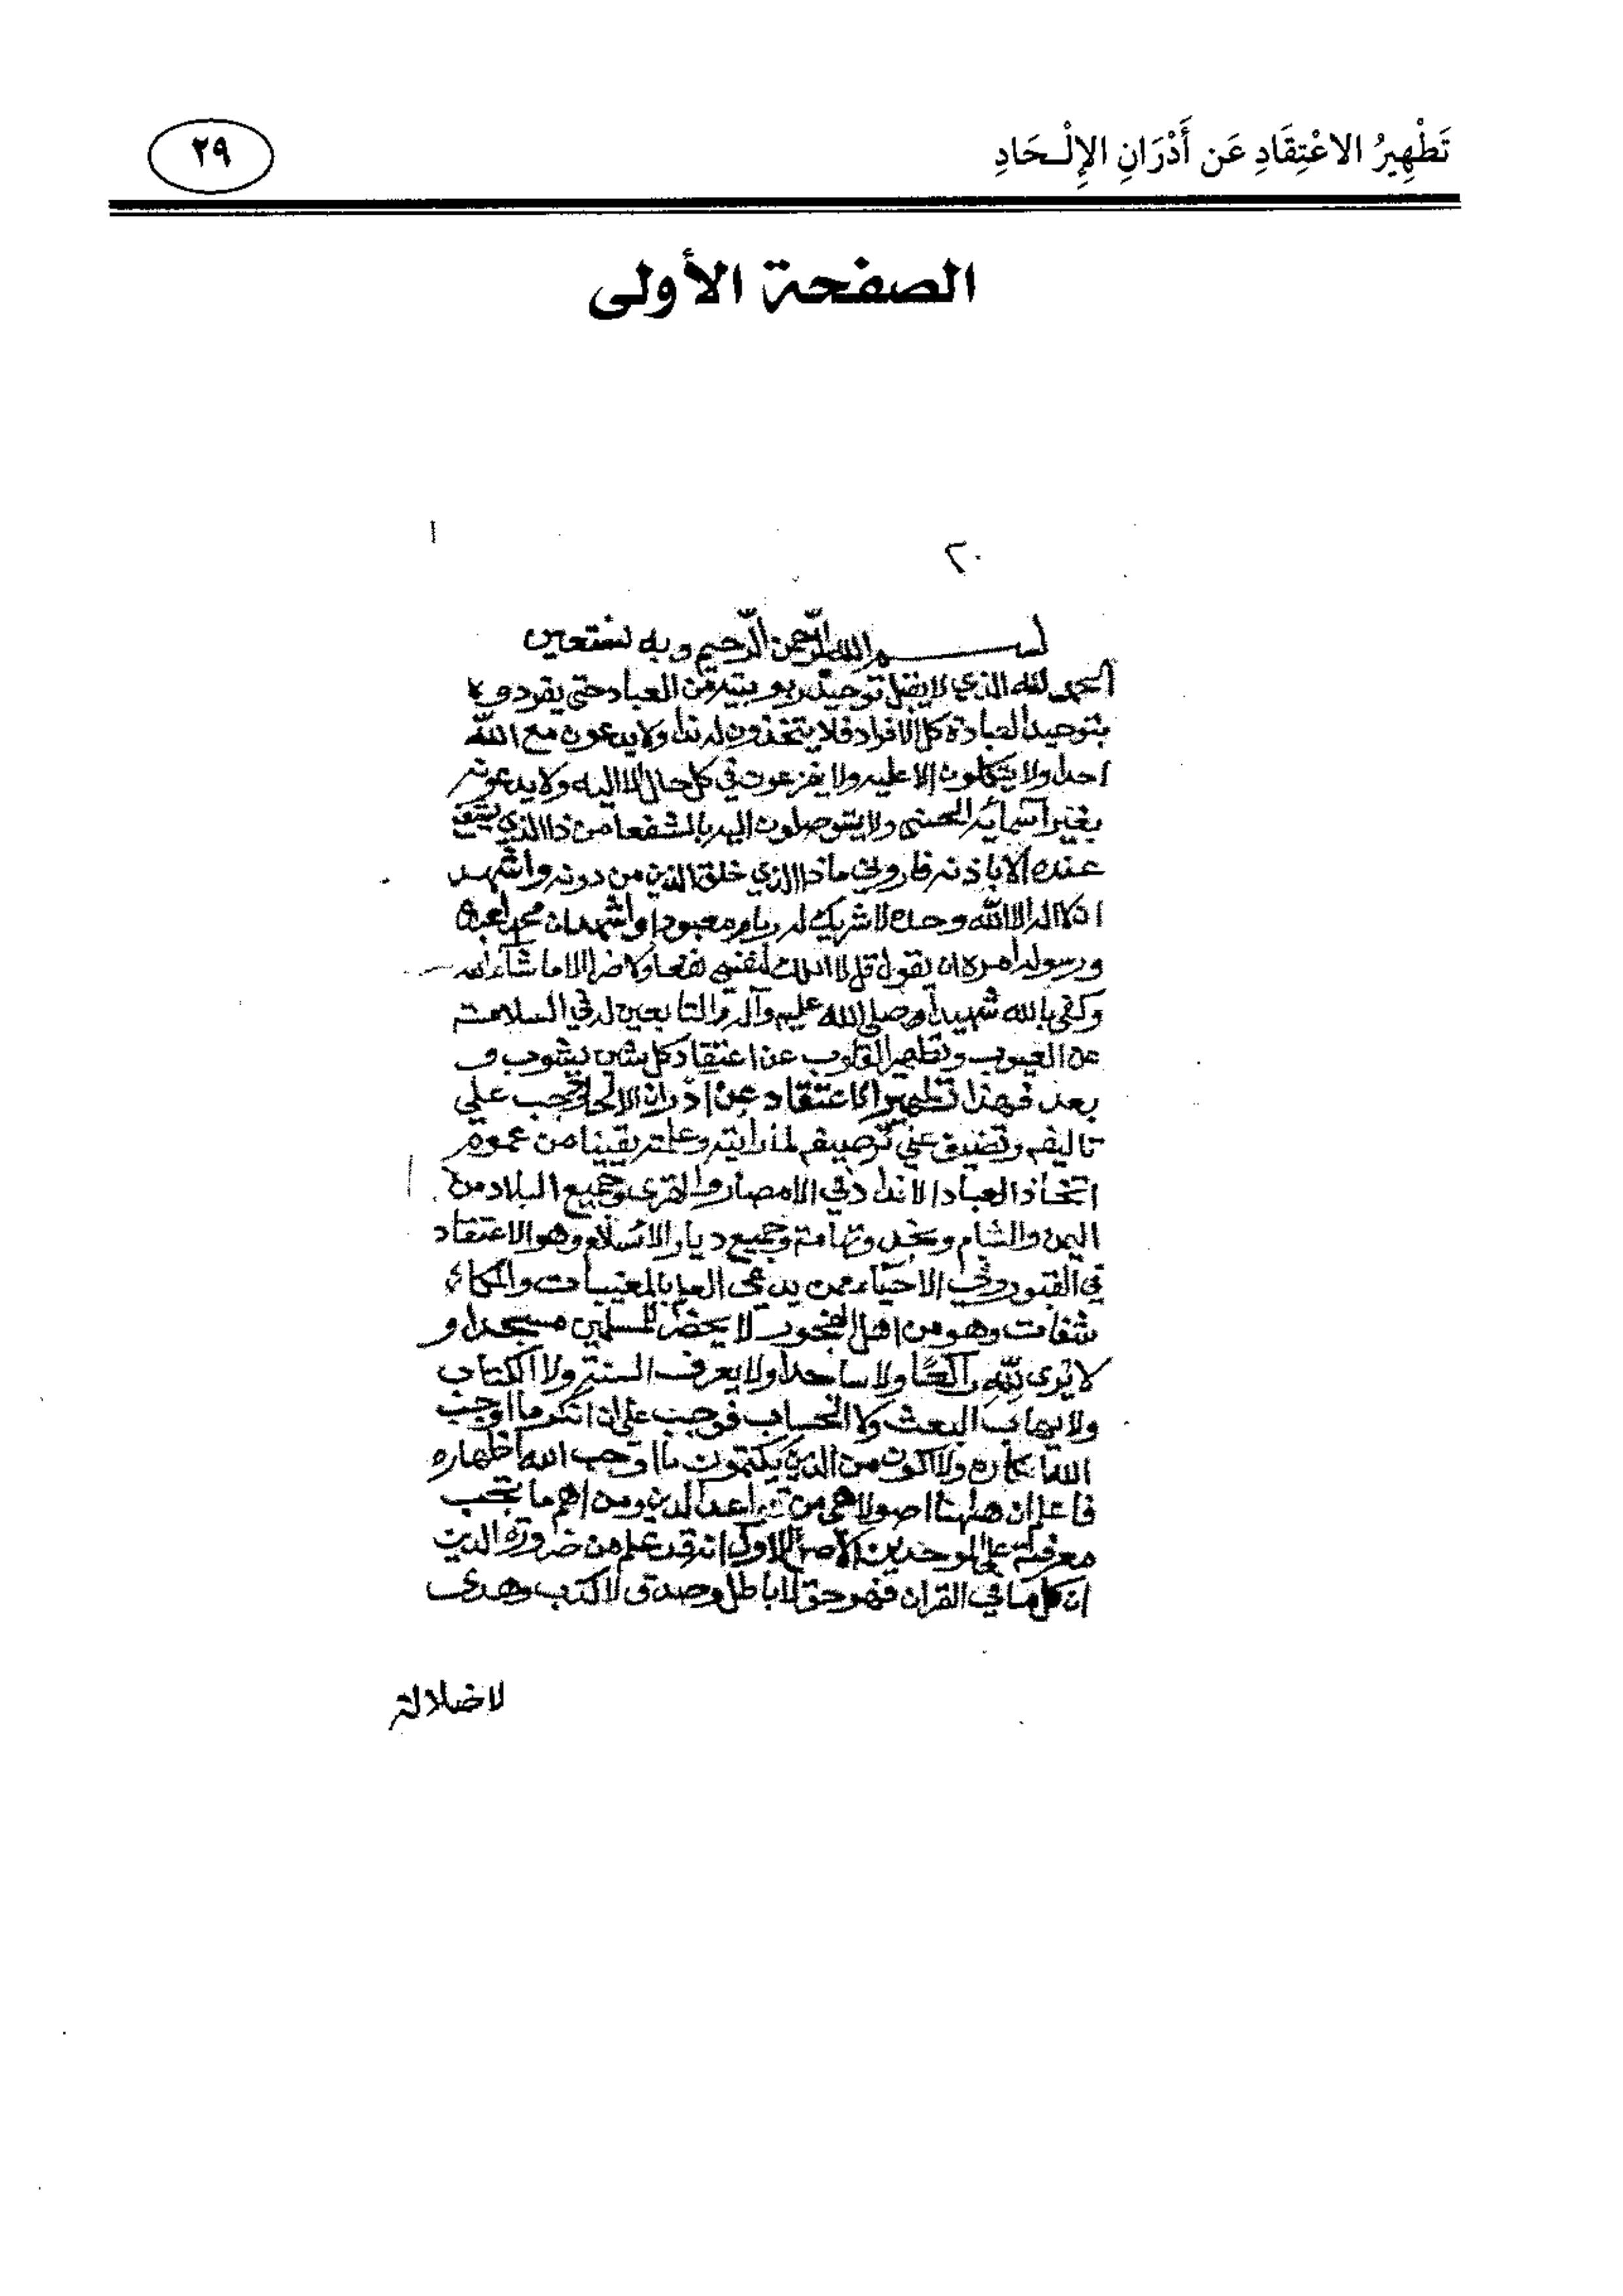 تَطْهِيرُ الاعْتِقَادِ عَن أَدْرَانِ الإِلْـحَادِ
٢٩
الصفحة الأولى
١
٢٠
بسم الله الرحمن الرحيم وبه نستعين
الحمد لله الذي لا يقبل توحيد ربوبيته من العباد حتى يفردوه
بتوحيد العبادة كل الافراد فلا يتخذون له ندا ولا يدعون مع الله
احدا ولا يتكلون الا عليه ولا يفزعون في كل حال الا اليه ولا يدعونه
بغير آسمائه الحسنى ولا يتوصلون اليه بالشفعا من ذا الذي يشفع
عنده الا باذنه فاروني ماذا الذي خلق الذين من دونه واشهد
ان لا اله الا الله وحده لا شريك له ربا ومعبودا واشهد ان محمدا عبده
ورسوله امره ان يقول قل لا املك لنفسي نفعا ولا ضرا الا ما شاء الله
وكفى بالله شهيدا وصلى الله عليه وآله والتابعين له في السلامة
عن العيوب وتطهير القلوب عن اعتقاد كل شين يشوب و
بعد فهذا تطهير الاعتقاد عن ادران الالحاد وجب علي
تاليفه وتضيق علي ترصيفه لما رايته وعلمته يقينا من عموم
اتخاذ العباد الانداد في الامصار والقرى وجميع البلاد من
اليمن والشام ونجد وتهامة وجميع ديار الاسلام وهو الاعتقاد
في القبور وفي الاحياء ممن يدعى العلم بالمغيبات والمكا
شفات وهو من اهل الفجور لا يحضر للمسلمين مسجدا و
لا يرى لله راكعا ولا ساجدا ولا يعرف السنة ولا الكتاب
ولا يهاب البعث ولا الحساب فوجب علي ان انكر ما اوجب
الله انكاره ولا اكون من الذين يكتمون ما اوجب الله اظهاره
فاعلم ان هاهنا اصولا هي من قواعد الدين ومن اهم ما تجب
معرفته على الموحدين الاصل الاول انه قد علم من ضرورة الدين
ان كل ما في القران فهو حق لا باطل وصدق لا كذب وهدى
لا ضلالة